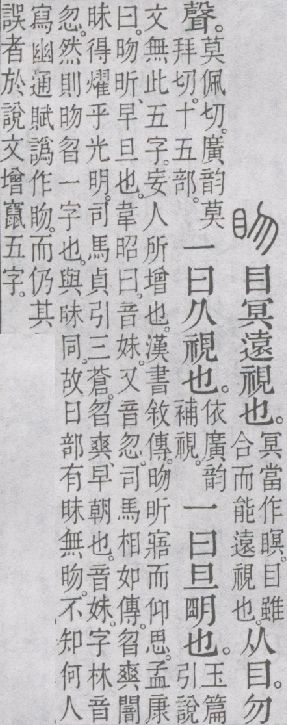 䀛目冥遠視也。冥當作瞑。目雖合而能遠視也。从目。勿
聲。莫佩切。廣韵莫拜切。十五部。一曰久視也。依廣韵補視。一曰旦朙也。玉篇引說
文無此五字。妄人所增也。漢書敘傳。昒昕寤而仰思。孟康
曰。昒昕、早旦也。韋昭曰。音妹。又音忽。司馬相如傳。曶爽闇
昧得燿乎光明。司馬貞引三蒼。曶爽、早朝也。音妹。字林音
忽。然則昒曶一字也。與昧同。故日部有昧無昒。不知何人
寫幽通賦譌作䀛。而仍其
誤者於說文增竄五字。